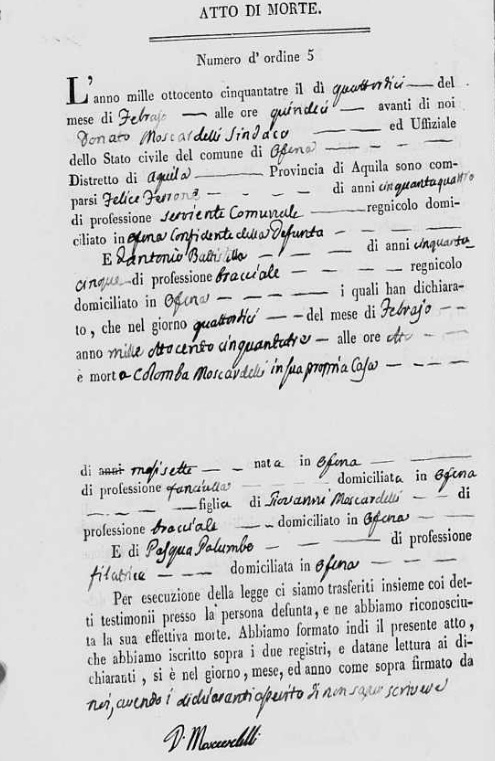 ATTO DI MORTE.
Numero d' ordine 5
L'anno mille ottocento cinquantatre il dì quattordici — del
mese di Febrajo — alle ore quindici — avanti di noi
Donato Moscardelli Sindaco — ed Uffiziale
dello Stato civile del comune di Ofena — — — —
Distretto di Aquila — Provincia di Aquila sono com-
parsi Felice — — — di anni cinquantaquattro
di professione serviente Comunale — regnicolo domi-
ciliato in Ofena Confidente della Defunta — — — —
E d'antonio — — — di anni cinquanta
cinque di professione bracciale — — — — regnicolo
domiciliato in Ofena — — — — i quali han dichiara-
to, che nel giorno quattordici — — del mese di Febrajo — —
anno mille ottocento cinquantatre — alle ore — —
è morta Colomba Moscardelli in sua propria Casa — — — —
di anni mesi sette — — nata in Ofena — —
di professione fanciulla — — — domiciliata in Ofena
— — — — figlia di Giovanni Moscardelli — — di
professione bracciale — — domiciliato in Ofena —
E di Pasqua Palumbo — — — di professione
filatrice — — — domiciliata in Ofena — — — —
Per esecuzione della legge ci siamo trasferiti insieme coi det-
ti testimonii presso la persona defunta, e ne abbiamo riconosciu-
ta la sua effettiva morte. Abbiamo formato indi il presente atto,
che abbiamo iscritto sopra i due registri, e datane lettura ai di-
chiaranti, si è nel giorno, mese, ed anno come sopra firmato da
noi, avendo i dichiaranti asserito di non saper scrivere
D. Moscardelli